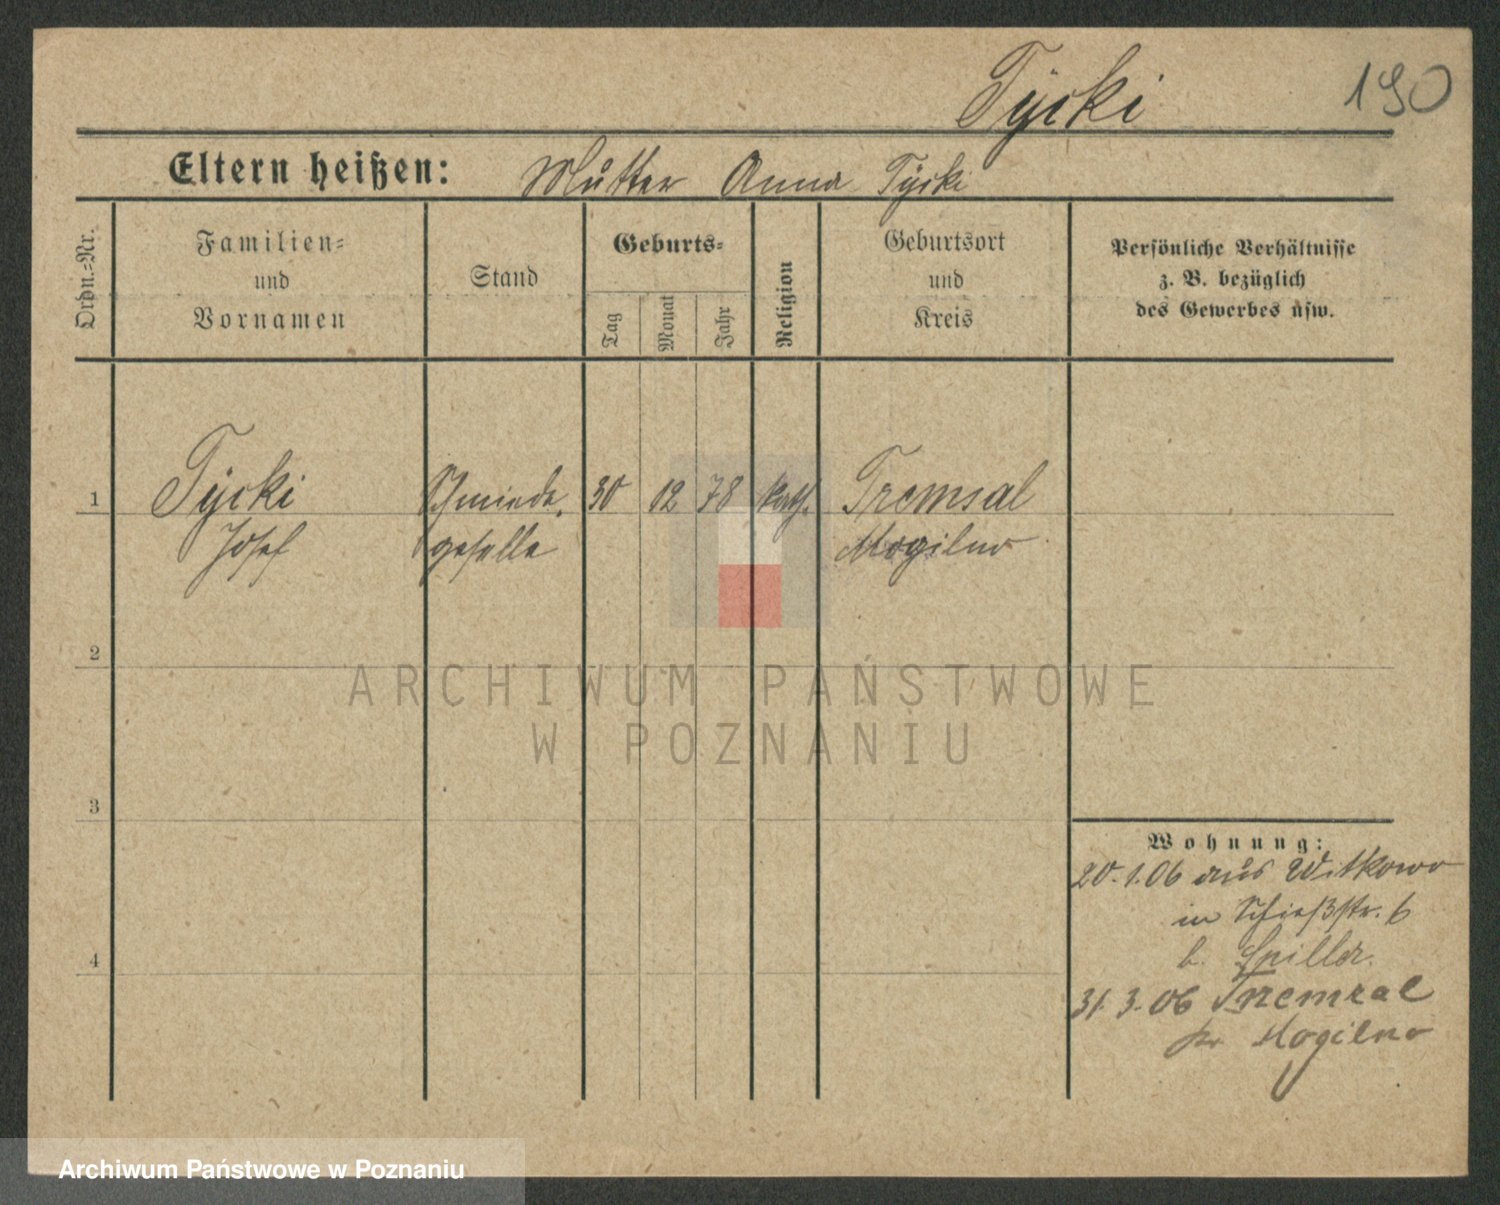 Tÿcki 190
Eltern heißen: Mutter Anna Tÿcki
Ordn.=Nr.
Familien=
und
Vornamen
Stand
Geburts=
Tag
Monat
Jahr
Religion
Geburtsort
und
Kreis
Persönliche Verhältnisse
z. B. bezüglich
des Gewerbes usw.
1 Tÿcki Schmiede= 30 12 78 kath. Tremsal
Josef geselle Mogilno
2
3
4
Wohnung:
20.1.06 aus Witkowo
in Schießstr. 6
b. Spiller.
31.3.06 Tremsal
Kr Mogilno
ARCHIWUM PAŃSTWOWE
W POZNANIU
Archiwum Państwowe w Poznaniu